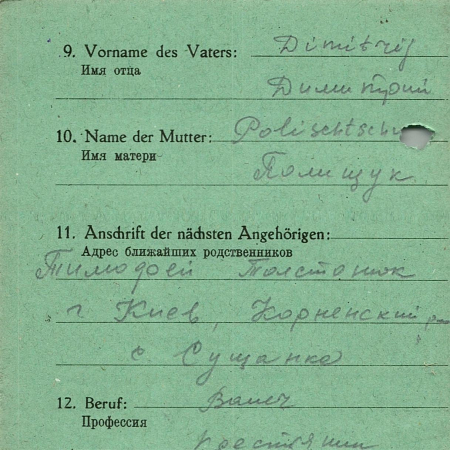 9. Vorname des Vaters: Dimitrij
Имя отца
Димитрий
10. Name der Mutter: Polischtschu
Имя матери
Полищук
11. Anschrift der nächsten Angehörigen:
Адрес ближайших родственников
Тимофей Толстанюк
г. Киев, Корненский
с. Сущанка
12. Beruf: Bauer
Профессия
крестьянин